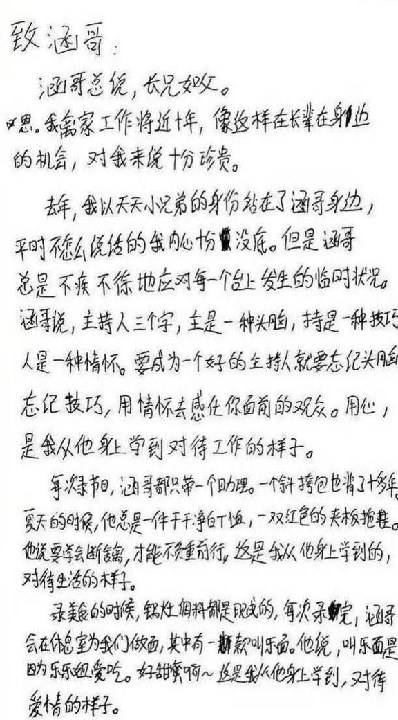 致涵哥：
涵哥总说，长兄如父。
我离家工作将近十年，像这样在长辈在身边
的机会，对我来说十分珍贵。
去年，我以天天小兄弟的身份站在了涵哥身边，
平时不怎么说话的我内心十分没底。但是涵哥
总是不疾不徐地应对每一个台上发生的临时状况。
涵哥说，主持人三个字，主是一种头脑，持是一种技巧
人是一种情怀。要成为一个好的主持人就要忘记头脑
忘记技巧，用情怀去感任你面前的观众。用心，
是我从他身上学到对待工作的样子。
每次录节目，涵哥都只带一个助理。一个斜挎包也背了十多年
夏天的时候，他总是一件干干净白T恤，一双红色的夹板拖鞋。
他说要学会断舍离，才能不负重前行，这是我从他身上学到的，
对待生活的样子。
录美食的时候，锅灶佃料都是现成的，每次录完，涵哥
会在休息室为我们做面，其中有一款叫乐面。他说，叫乐面是
因为乐乐姐爱吃。好甜蜜啊～这是我从他身上学到，对待
爱情的样子。